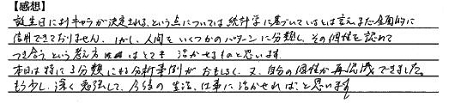 【感想】
誕生日によりキャラが決定される、という点については統計学に基づいているとは言え、まだ全面的に
信用できておりません。しかし、人間をいくつかのパターンに分類し、その個性を認めて
つき合うという考え方はとても活かせるものと思います。
本日は特に3分類による分析事例がおもしろく、又、自分の個性が再認識できました。
もう少し、深く勉強して、今後の生活、仕事に活かせれば、と思います。